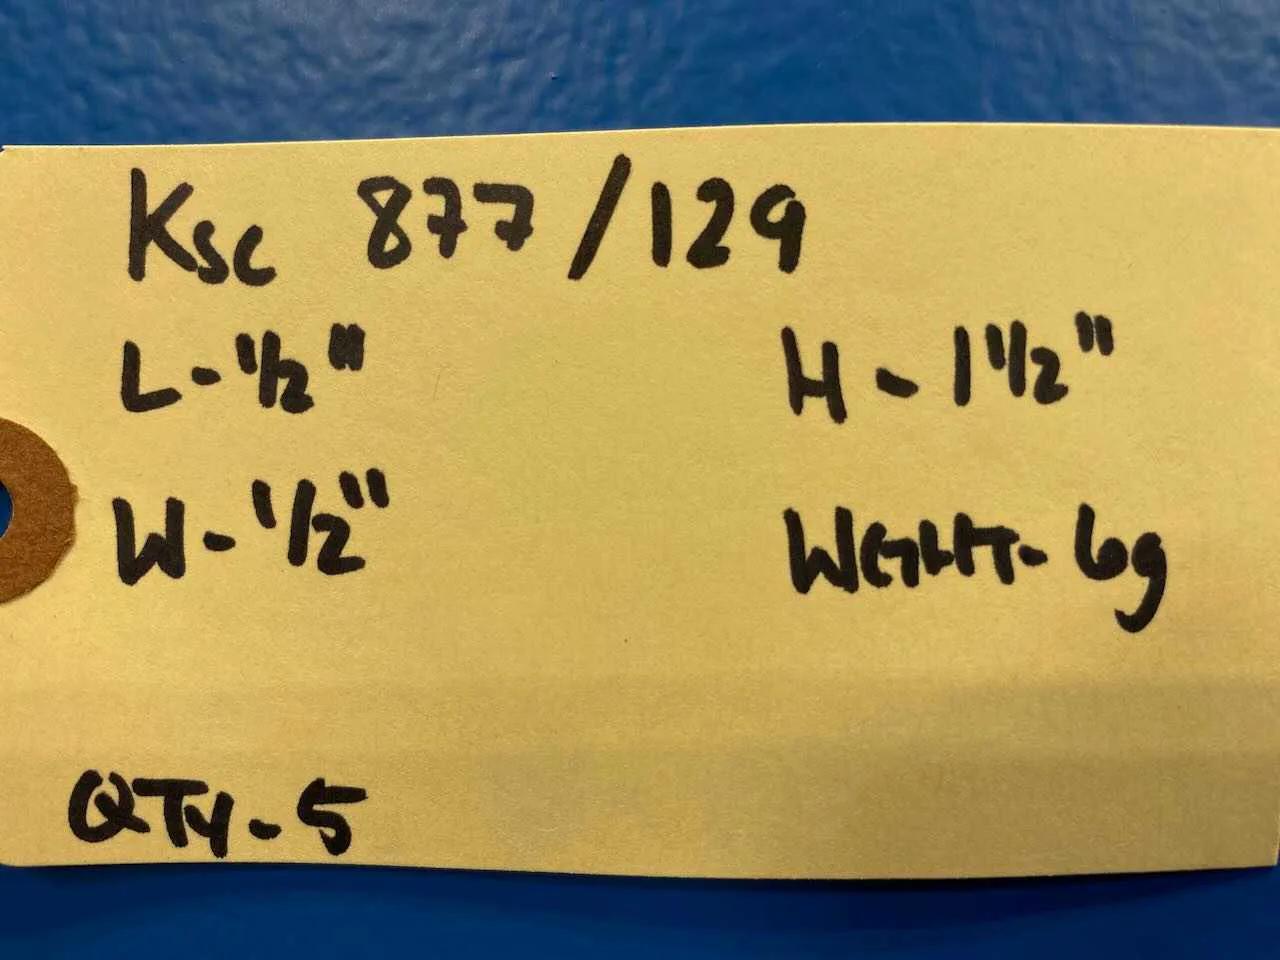 Ksc 877/129
L-1/2" H-1 1/2"
W-1/2" WEIGHT-6g
QTY-5